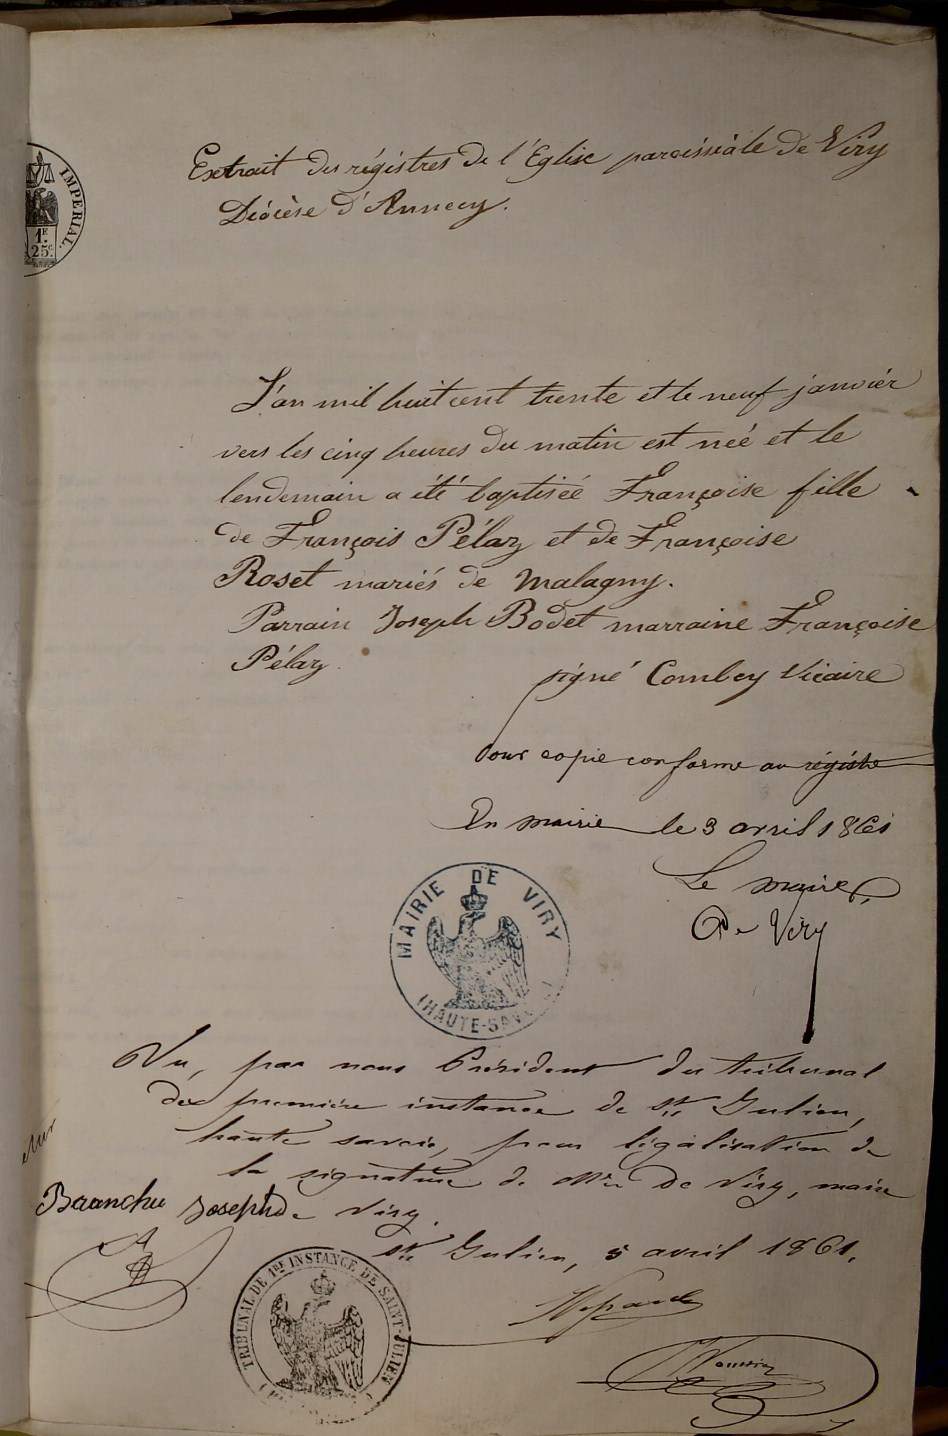 Extrait des régistres de l'Eglise paroissiale de Viry
Diócèse d'Annecy.
IMPERIAL.
1.F
25.c
L'an mil huit cent trente et le neuf janvier
vers les cinq heures du matin est neé et le
lendemain a été baptisée Françoise fille
de François Pélaz et de Françoise
Roset mariés de Malagny.
Parrain Joseph Bodet marraine Françoise
Pélaz.
signé Combey Vicaire
Pour copie conforme au régistre
En mairie le 3 avril 1861
Le maire
De Viry
MAIRIE DE VIRY
(HAUTE-SAVOIE)
Vu, par nous Président du tribunal
de première instance de St Julien,
haute savoie, pour légalisation de
la signature de Mr De Viry, maire
de Viry.
Joseph
St Julien, 5 avril 1861.
TRIBUNAL DE 1RE INSTANCE DE SAINT-JULIEN